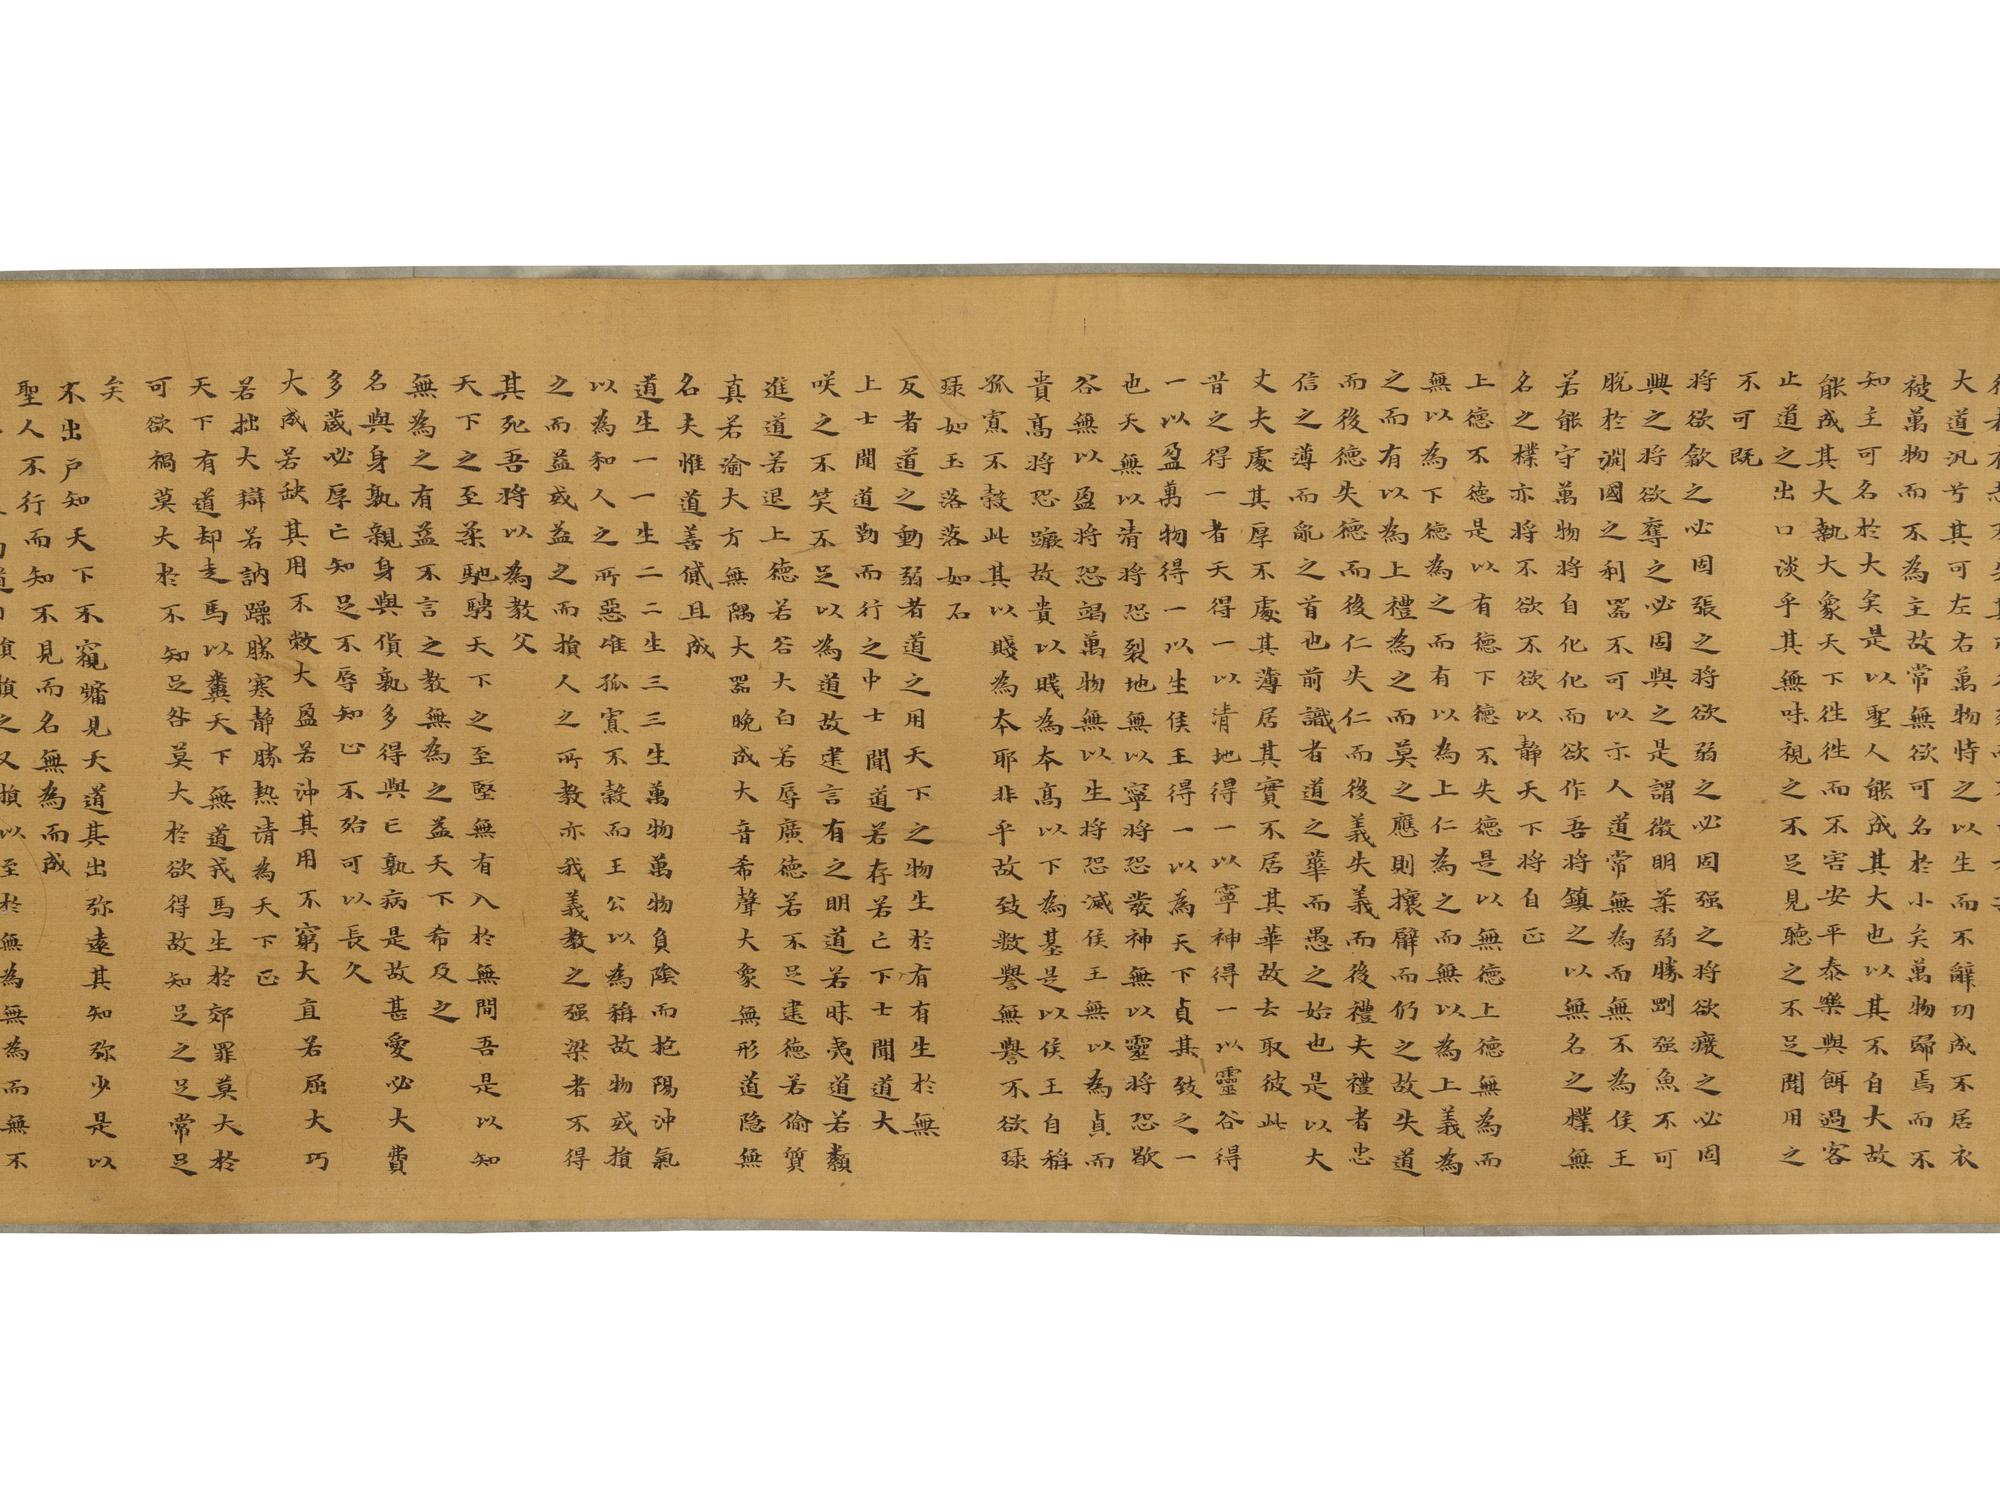 大道汎兮其可左右萬物恃之以生而不辭功成不居衣
被萬物而不為主故常無欲可名於小矣萬物歸焉而不
知主可名於大矣是以聖人能成其大也以其不自大故
能成其大執大象天下徃徃而不害安平泰樂與餌過客
止道之出口淡乎其無味視之不足見聽之不足聞用之
不可既
將欲歙之必固張之將欲弱之必固强之將欲廢之必固
興之將欲奪之必固與之是謂微明柔弱勝剛强魚不可
脫於淵國之利器不可以示人道常無為而無不為侯王
若能守萬物將自化化而欲作吾將鎮之以無名之樸無
名之樸亦將不欲不欲以静天下將自正
上德不德是以有德下德不失德是以無德上德無為而
無以為下德為之而有以為上仁為之而無以為上義為
之而有以為上禮為之而莫之應則攘臂而仍之故失道
而後德失德而後仁失仁而後義失義而後禮夫禮者忠
信之薄而亂之首也前識者道之華而愚之始也是以大
丈夫處其厚不處其薄居其實不居其華故去取彼此
昔之得一者天得一以清地得一以寧神得一以靈谷得
一以盈萬物得一以生侯王得一以為天下貞其致之一
也天無以清將恐裂地無以寧將恐發神無以靈將恐歇
谷無以盈將恐竭萬物無以生將恐滅侯王無以為貞而
貴高將恐蹶故貴以賤為本高以下為基是以侯王自稱
孤寡不穀此其以賤為本耶非乎故致數譽無譽不欲琭
琭如玉落落如石
反者道之動弱者道之用天下之物生於有有生於無
上士聞道勤而行之中士聞道若存若亡下士聞道大
咲之不笑不足以為道故建言有之明道若昧夷道若纇
進道若退上德若谷大白若辱廣德若不足建德若偷質
真若渝大方無隅大器晚成大音希聲大象無形道隐無
名夫惟道善貸且成
道生一一生二二生三三生萬物萬物負陰而抱陽沖氣
以為和人之所惡唯孤寡不穀而王公以為稱故物或損
之而益或益之而損人之所教亦我義教之强梁者不得
其死吾將以為教父
天下之至柔馳騁天下之至堅無有入於無間吾是以知
無為之有益不言之教無為之益天下希及之
名與身孰親身與貨孰多得與亡孰病是故甚愛必大費
多蔵必厚亡知足不辱知止不殆可以長久
大成若缺其用不敝大盈若沖其用不窮大直若屈大巧
若拙大辯若訥躁勝寒静勝熱清為天下正
天下有道却走馬以糞天下無道戎馬生於郊罪莫大於
可欲禍莫大於不知足咎莫大於欲得故知足之足常足
矣
不出戶知天下不窺牖見天道其出弥遠其知弥少是以
聖人不行而知不見而名無為而成
損之又損以至於無為無為而無不